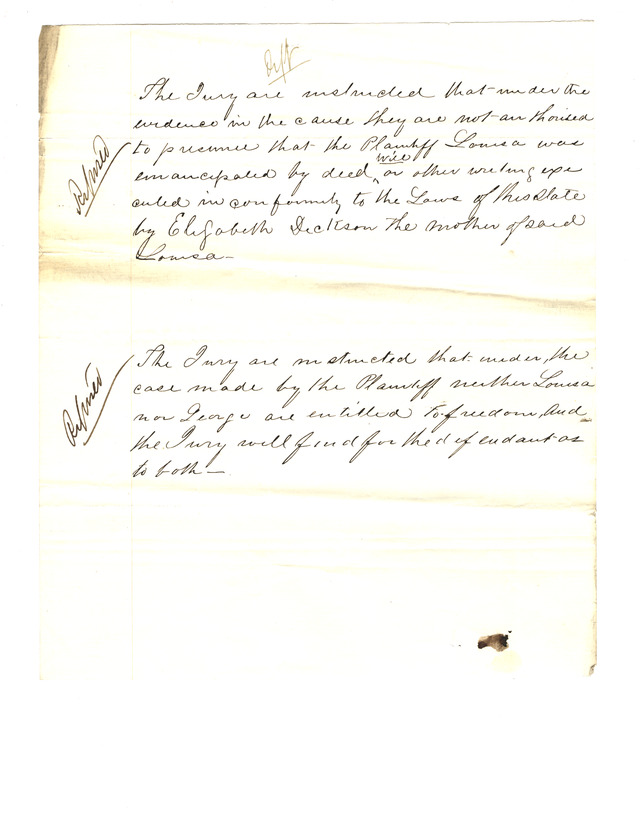 Deft
The Jury are instructed that under the
evidence in the cause they are not authorised
to presume that the Plaintiff Louisa was
will
emancipated by deed ^ or other writing exe
cuted in conformity to the Laws of this State
by Elizabeth Dickson the mother of said
Louisa—
Refused
The Jury are instructed that under, the
case made by the Plaintiff neither Louisa
nor George are entitled to freedom, And
the Jury will find for the defendant as
to both—
Refused